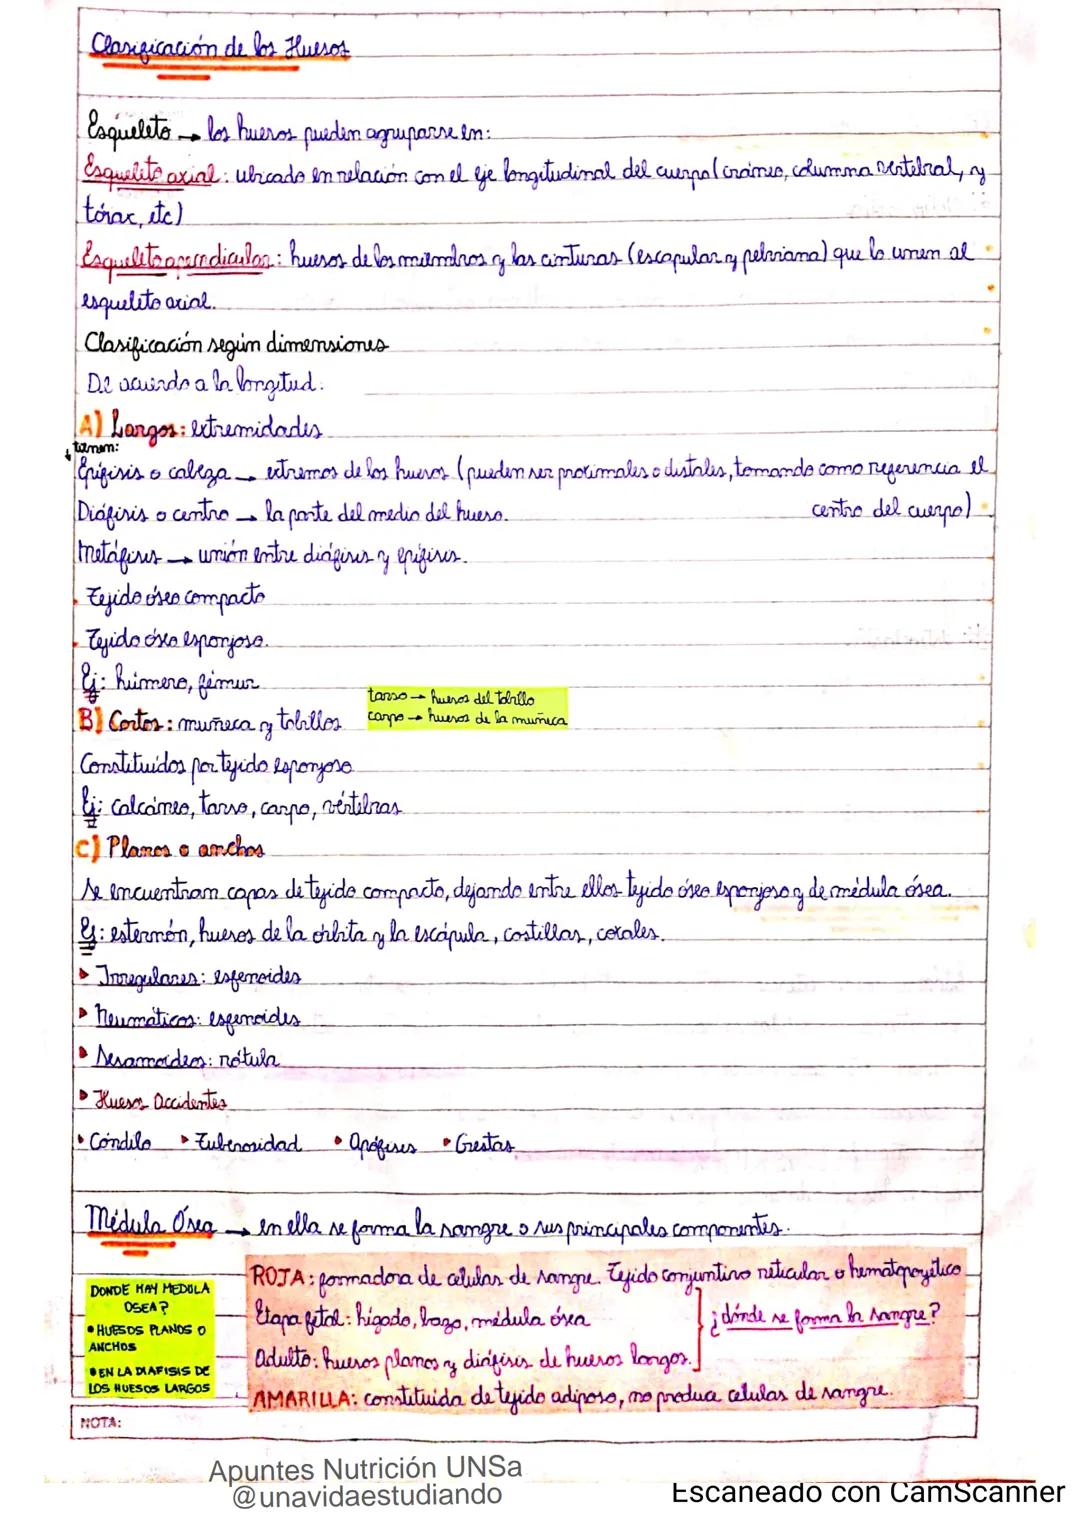 Clasificación de los Huesos
Esqueleto → los huesos pueden agruparse en:
Esqueleto axial: ubicado en relación con el eje longitudinal del cuerpo (cráneo, columna vertebral, y
tórax, etc)
Esqueleto apendicular: huesos de los miembros y las cinturas (escapular y pelviana) que lo unen al
esqueleto axial.
Clasificación según dimensiones
De acuerdo a la longitud:
A) Largos: extremidades
tienen:
Epífisis o cabeza → extremos de los huesos (pueden ser proximales o distales, tomando como referencia el
centro del cuerpo)
Diáfisis o centro → la parte del medio del hueso.
Metáfisis → unión entre diáfisis y epífisis.
Tejido óseo compacto
Tejido óseo esponjoso.
Ej: húmero, fémur
tarso → huesos del tobillo
carpo → huesos de la muñeca
B) Cortos: muñeca y tobillos
Constituidos por tejido esponjoso
Ej: calcáneo, tarso, carpo, vértebras
C) Planos o anchos
Se encuentran capas de tejido compacto, dejando entre ellos tejido óseo esponjoso y de médula ósea.
Ej: esternón, huesos de la órbita y la escápula, costillas, coxales.
▸ Irregulares: esfenoides
▸ Neumáticos: esfenoides
▸ Sesamoideos: rótula
▸ Huesos Accidentes
• Cóndilo ▸ Tuberosidad • Apófisis • Crestas
Médula Ósea → en ella se forma la sangre o sus principales componentes.
DONDE HAY MEDULA
OSEA?
• HUESOS PLANOS O
ANCHOS
• EN LA DIAFISIS DE
LOS HUESOS LARGOS
ROJA: formadora de celulas de sangre. Tejido conjuntivo reticular o hematopoyético
Etapa fetal: hígado, bazo, médula ósea
¿dónde se forma la sangre?
Adulto: huesos planos y diáfisis de huesos largos.
AMARILLA: constituida de tejido adiposo, no produce celulas de sangre.
NOTA:
Apuntes Nutrición UNSa
@unavidaestudiando
Escaneado con CamScanner